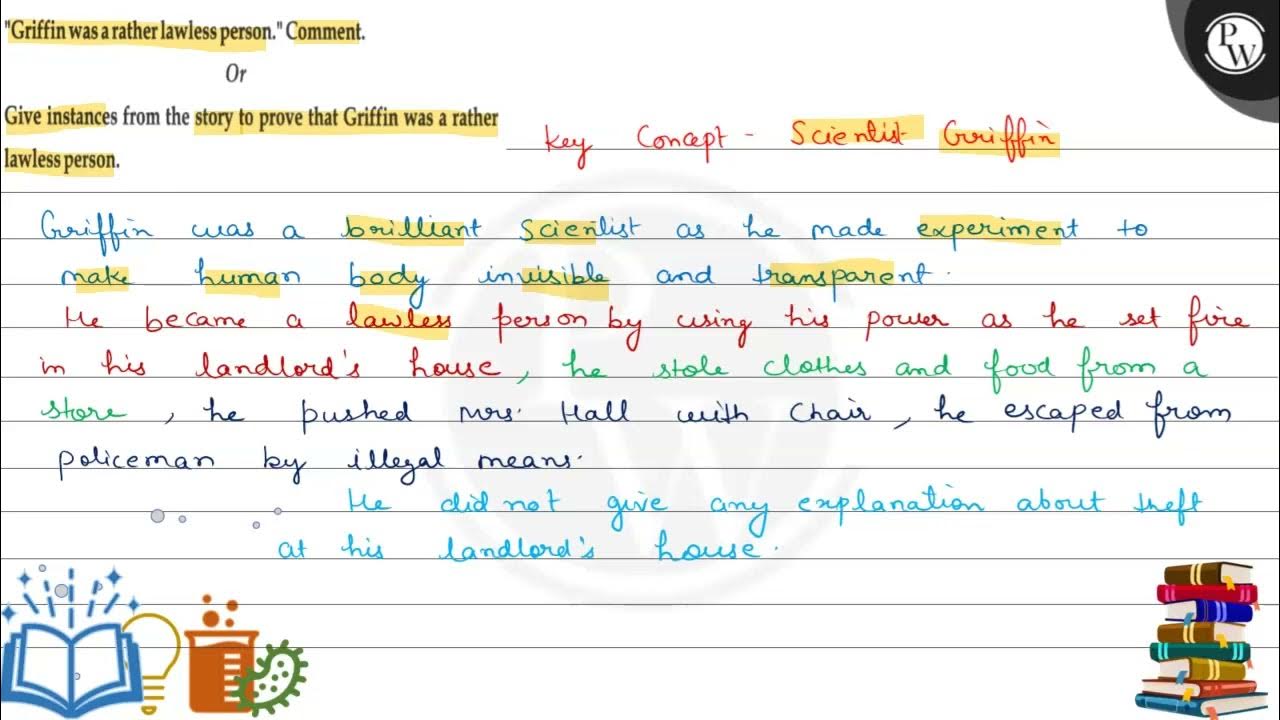 "Griffin was a rather lawless person." Comment.
Or
Give instances from the story to prove that Griffin was a rather
lawless person.
Key Concept - Scientist Griffin
Griffin was a brilliant scientist as he made experiment to
make human body invisible and transparent.
He became a lawless person by using his power as he set fire
in his landlord's house, he stole clothes and food from a
store, he pushed Mrs. Hall with chair, he escaped from
policeman by illegal means.
He did not give any explanation about theft
at his landlord's house.
PW
PW